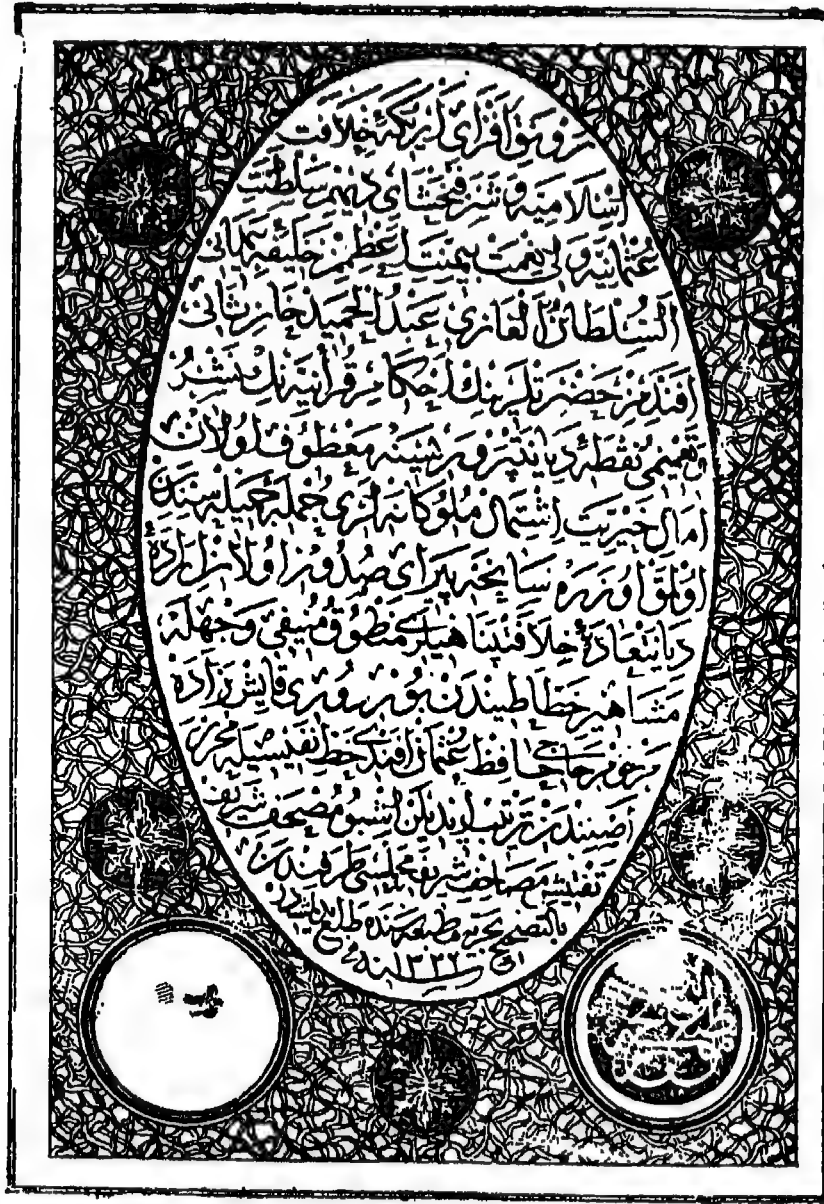 رونق افزای اریکهٔ خلافت
اسلامیه و شرفبخشای دیهیم سلطنت
عثمانیه ولی نعمت بیمنت اعظم خلیفهٔ
السلطان الغازی عبد الحمید خان ثانی
افندیمز حضرتلرینك احکام قرآنیه نك نشر
و تعمیمی نقطهٔ دیانتپروریسنه معطوف اولان
امال خیریت اشتمال ملوکانه لری جملهٔ جمیله سندن
اولمق اوزره سانحه پیرای صدور اولان ارادهٔ
خلافتپناهیلری منطوق منیفی وجهله
مشاهیر خطاطیندن بوردوری قایش زاده
مرحوم حاجی حافظ عثمان افندی خط نفیسیله محرر
ایدیلن اشبو مصحف شریف
تفتیش مصاحف شریفه مجلسی طرفندن
بالتصحیح بحریه مطبعه سنده طبع
سنه